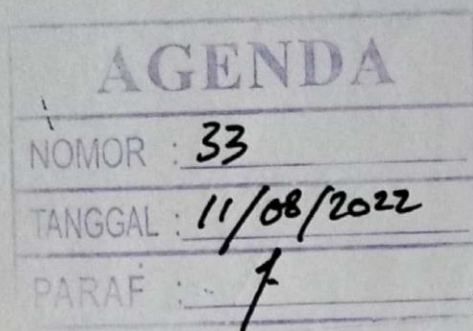 AGENDA
NOMOR : 33
TANGGAL : 11/08/2022
PARAF :